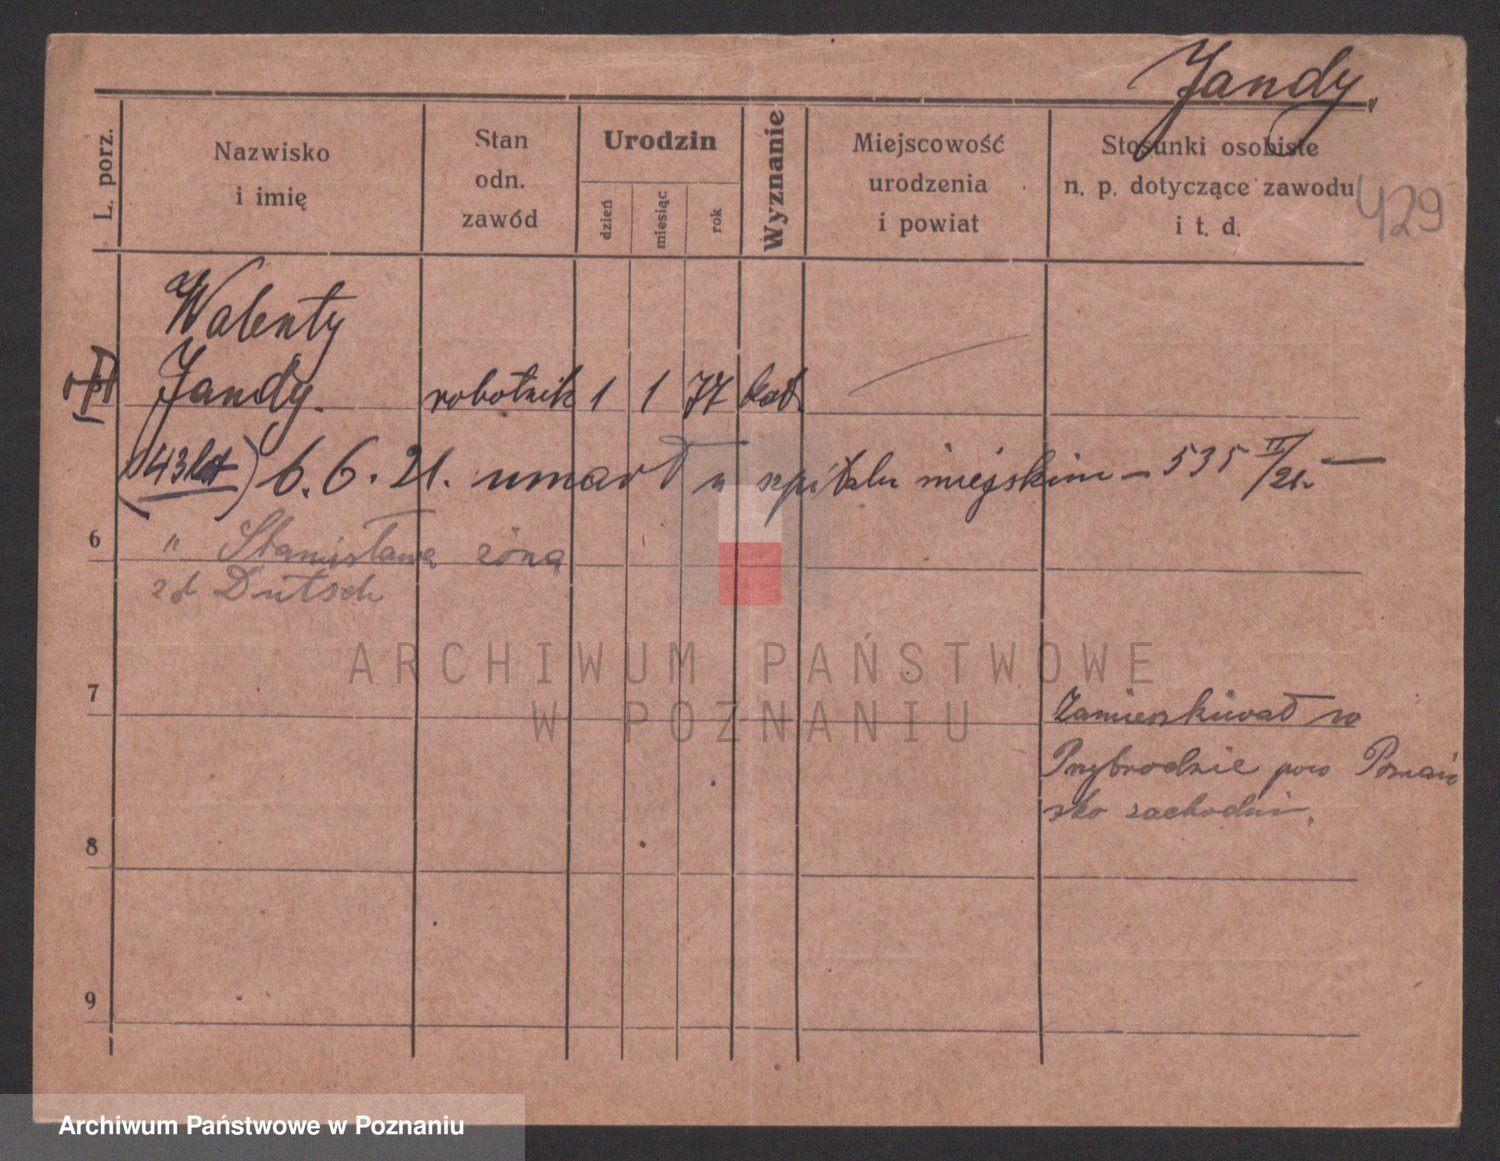 Jandy.
429
L. porz.
Nazwisko
i imię
Stan
odn.
zawód
Urodzin
dzień
miesiąc
rok
Wyznanie
Miejscowość
urodzenia
i powiat
Stosunki osobiste
n. p. dotyczące zawodu
i t. d.
Walenty
Jandy. robotnik 1 1 77 kat.
(43 lat) 6. 6. 21. umarł w szpitalu miejskim – 535 II/21. –
6
" Stanisława żona
zd Dutsch
ARCHIWUM PAŃSTWOWE
W POZNANIU
7
Zamieszkiwał w
Przybrodzie pow Poznań
sko zachodni.
8
9
Archiwum Państwowe w Poznaniu